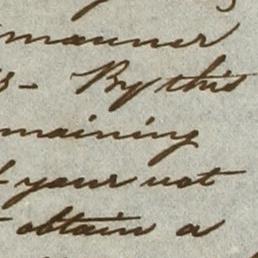 manner
s - By this
maining
your not
obtain a